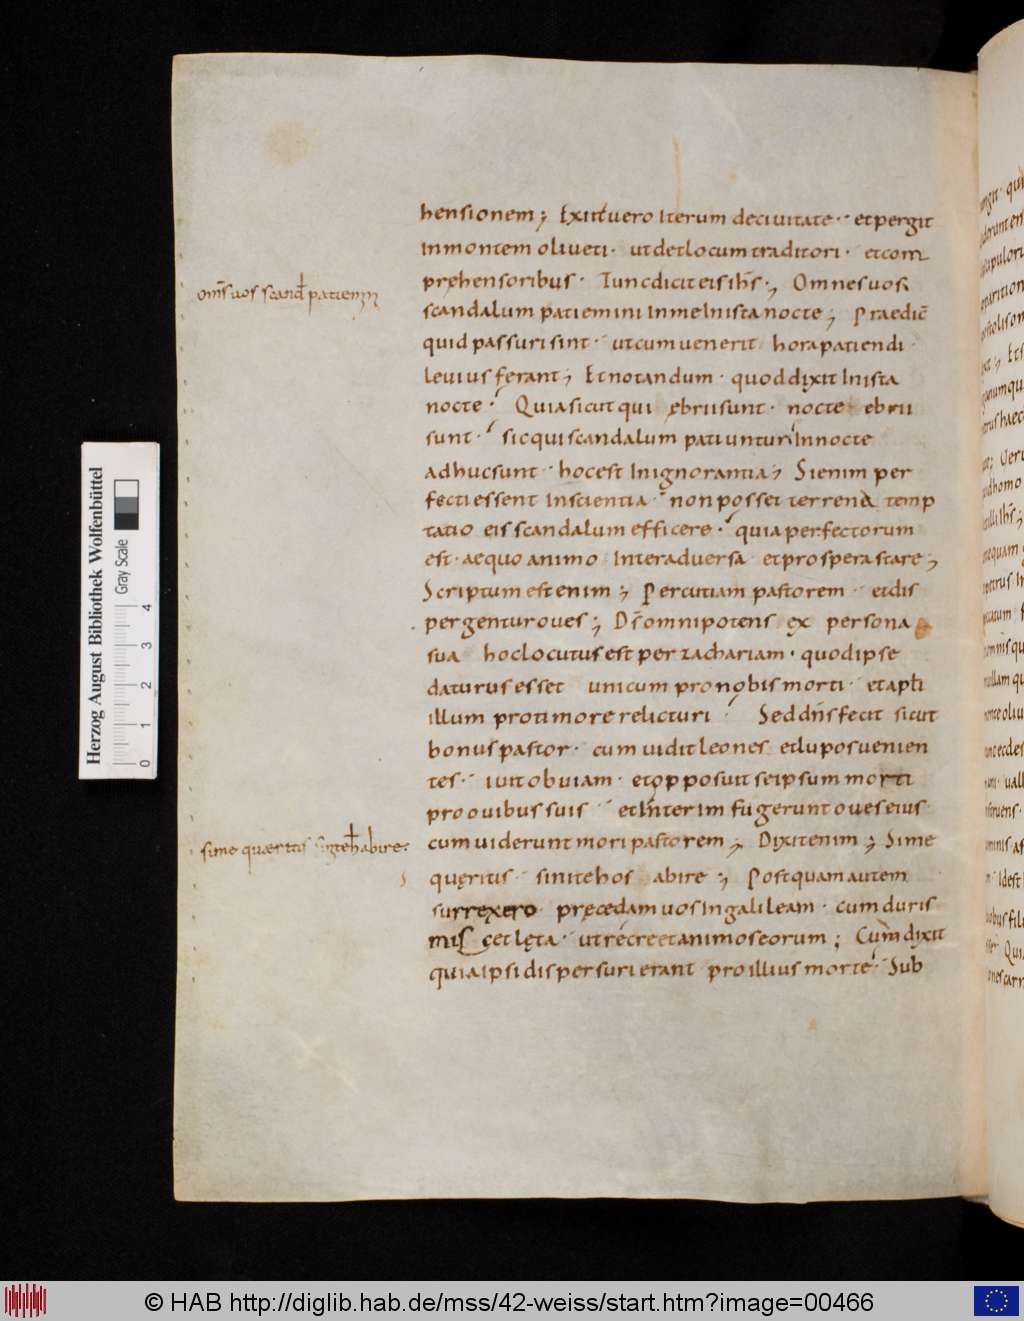 hensionem; Exiit uero iterum de ciuitate· et pergit
in montem oliueti· ut det locum traditori· et com
pręhensoribus· Tunc dicit eis ih̄s·; Omnes uos
om̄s uos scand patiem
scandalum patiemini in me in ista nocte; Praedic̄
quid passuri sint· ut cum uenerit hora patiendi·
leuius ferant; Et notandum· quod dixit in ista
nocte· Quia sicut qui ębrii sunt· nocte ebrii
sunt· sic qui scandalum patiuntur in nocte
adhuc sunt· hoc est in ignorantia; Si enim per
fecti essent in scientia· non posset terrena temp
tatio eis scandalum efficere· quia perfectorum
est· aequo animo inter aduersa et prospera stare;
Scriptum est enim; Percutiam pastorem· et dis
pergentur oues; D̄s omnipotens ex persona
sua hoc locutus est per zachariam· quod ipse
daturus esset unicum pro nobis morti· et apl̄i
illum pro timore relicturi· Sed dn̄s fecit sicut
bonus pastor· cum uidit leones et lupos uenien
tes· iuit obuiam· et opposuit se ipsum morti
pro ouibus suis· et interim fugerunt oues eius·
cum uiderunt mori pastorem; Dixit enim; Si me
si me quæritis abire·
quęritis· sinite hos abire; Postquam autem
surrexero· pręcedam uos in galileam· cum duris
mis et lęta· ut recreet animos eorum; Cum dixit
quia ipsi dispersuri erant pro illius morte· Sub
Herzog August Bibliothek Wolfenbüttel
Gray Scale
0 1 2 3 4
© HAB http://diglib.hab.de/mss/42-weiss/start.htm?image=00466